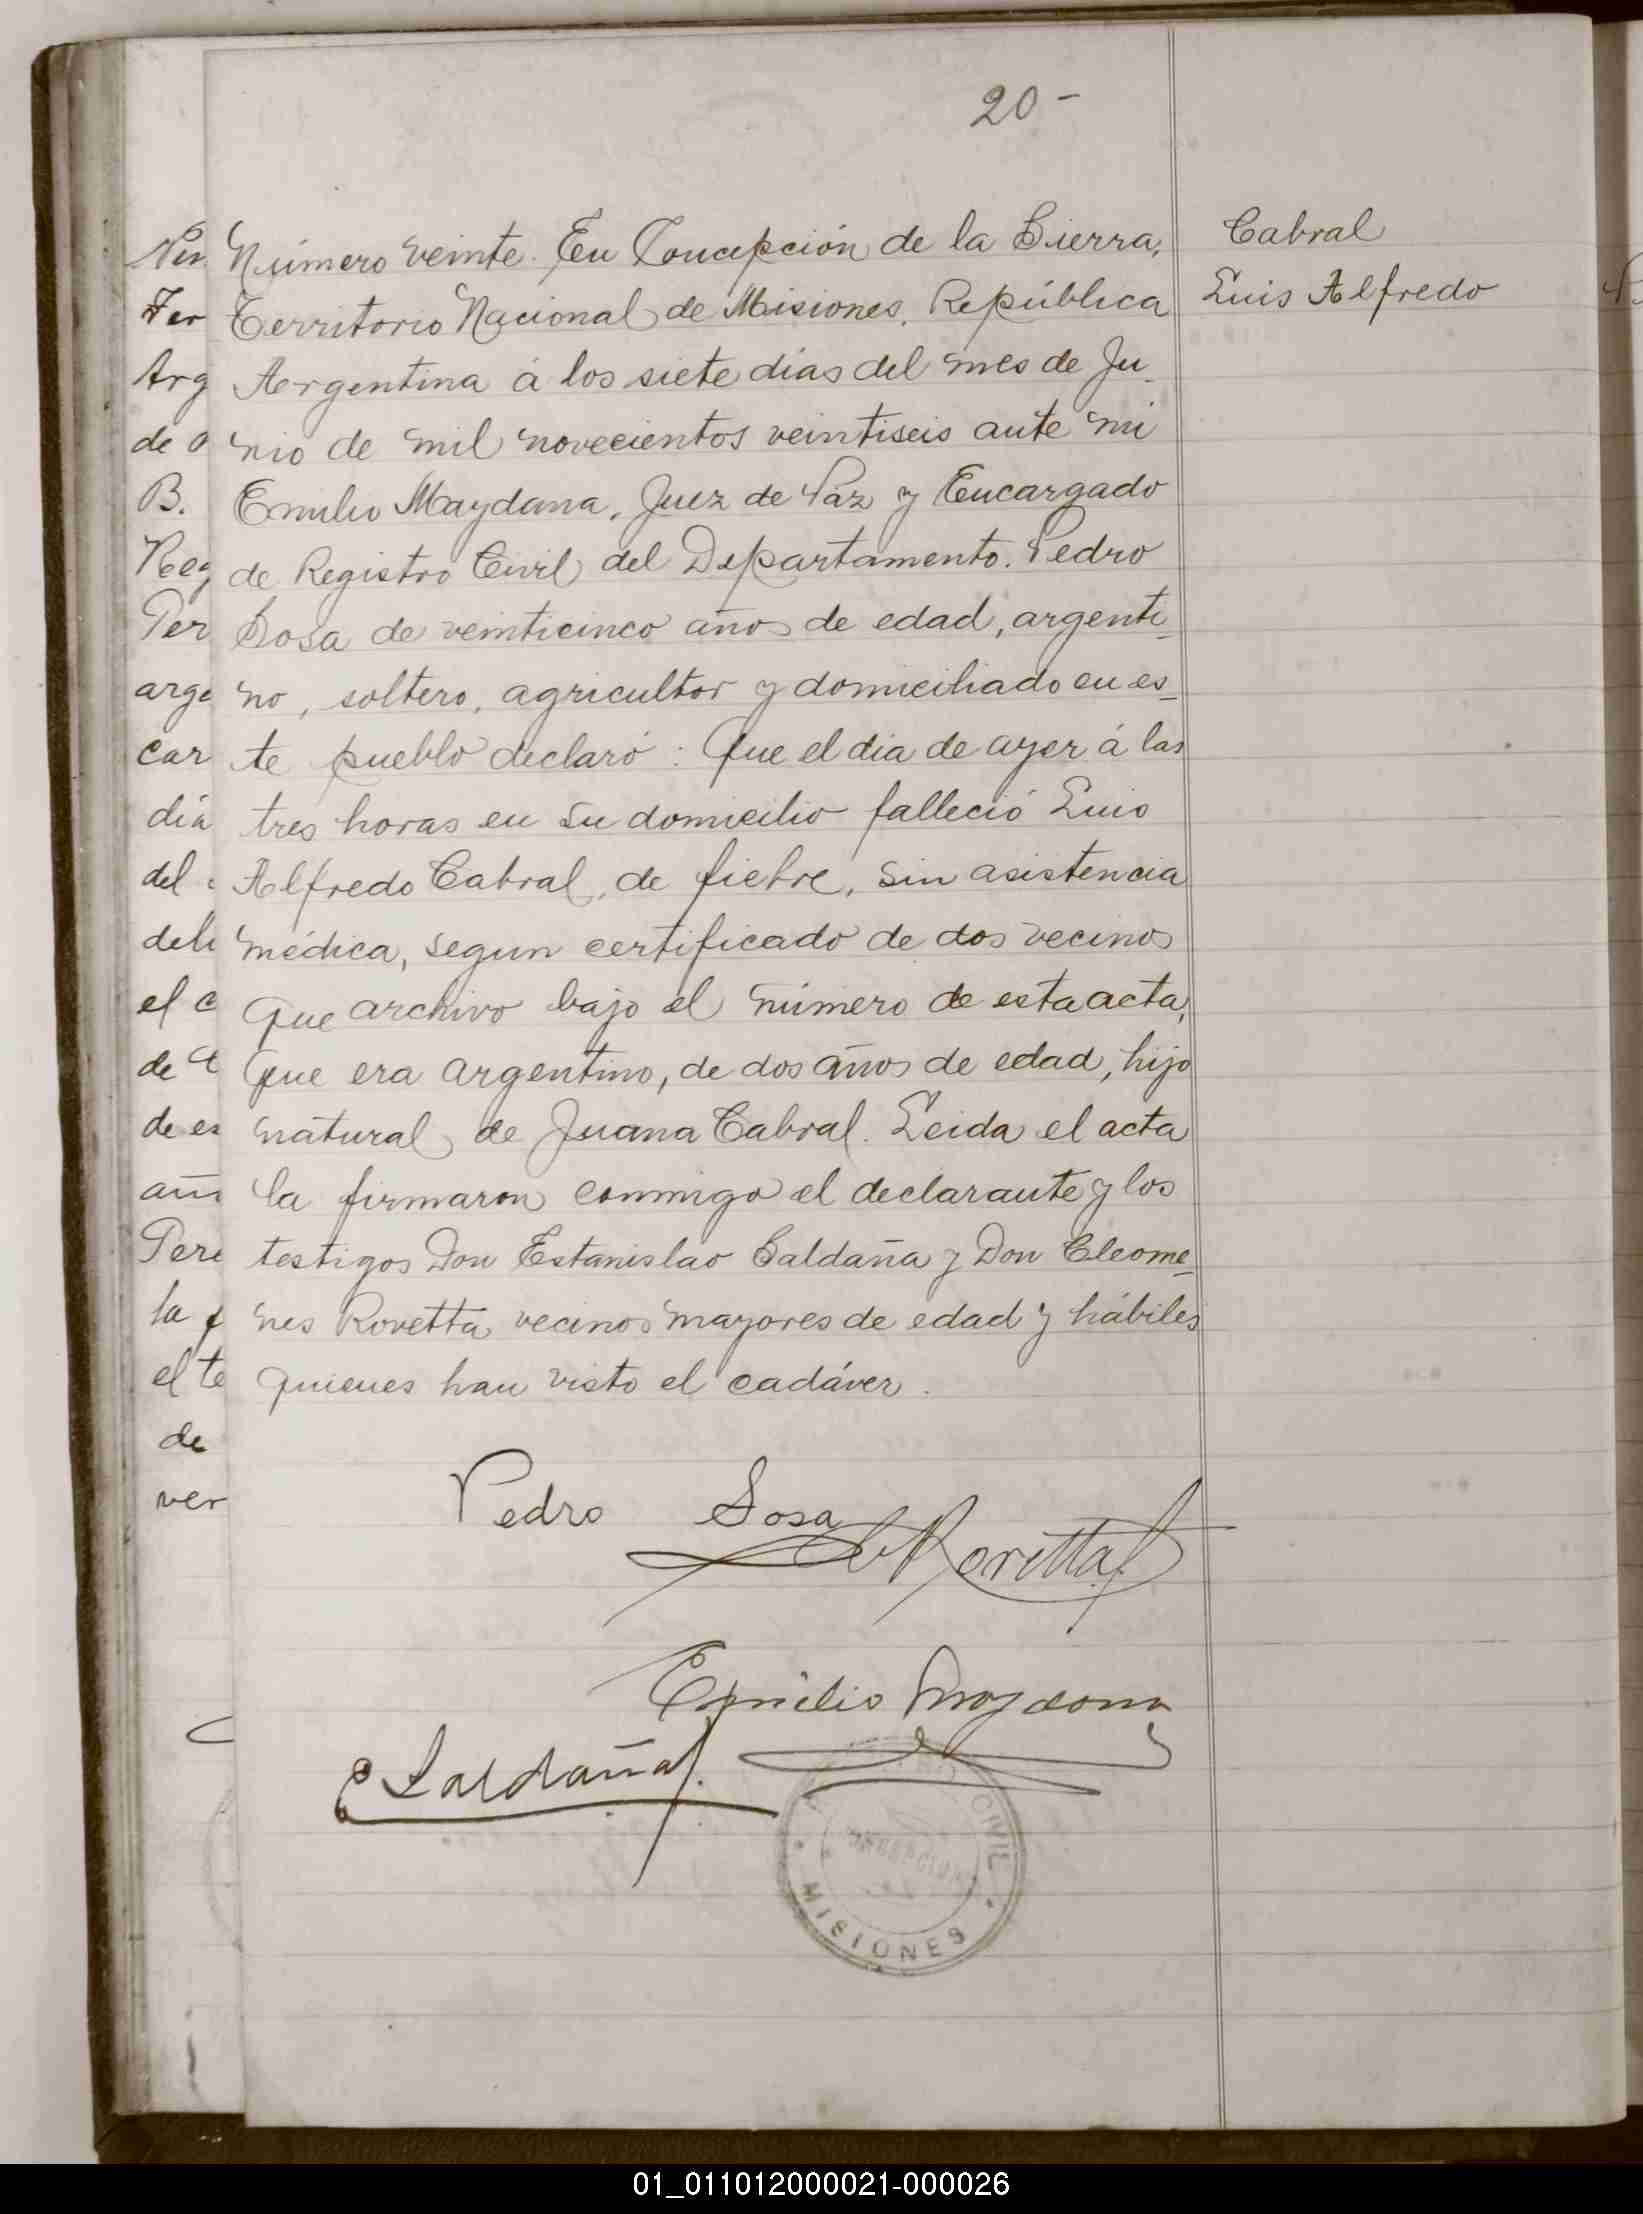 20-
Número veinte. En Concepción de la Sierra,
Territorio Nacional de Misiones, República
Argentina á los siete dias del mes de Ju-
nio de mil novecientos veintiseis ante mi
Emilio Maydana, Juez de Paz y Encargado
de Registro Civil del Departamento. Pedro
Sosa de veinticinco años de edad, argenti-
no, soltero, agricultor y domiciliado en es-
te pueblo declaró: Que el dia de ayer á las
tres horas en su domicilio falleció Luis
Alfredo Cabral, de fiebre, sin asistencia
médica, segun certificado de dos vecinos
que archivo bajo el número de esta acta,
que era argentino, de dos años de edad, hijo
natural de Juana Cabral. Leida el acta
la firmaron conmigo el declarante y los
testigos Don Estanislao Saldaña y Don Cleome-
nes Rovetta vecinos mayores de edad y hábiles
quienes han visto el cadáver.
Cabral
Luis Alfredo
Pedro Sosa
Rovetta
Emilio Maydana
E Saldaña
CIVIL
CONCEPCION
MISIONES
Ter
Arg
de
B.
Reg
Per
arge
car
día
del
el c
de
de es
Pere
la
el te
de
ver
01_011012000021-000026